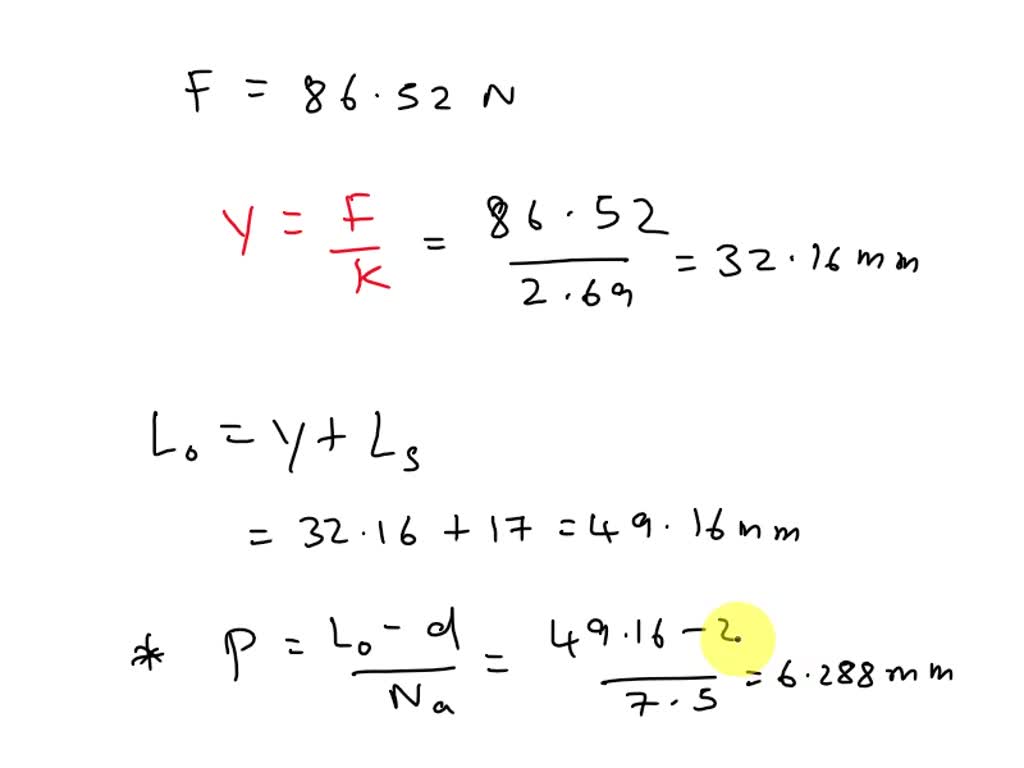 F = 86.52 N
y = F/K = 86.52/2.69 = 32.16 mm
L₀ = y + Ls
= 32.16 + 17 = 49.16 mm
* P = L₀ - d/Na = 49.16 - 2/7.5 = 6.288 mm